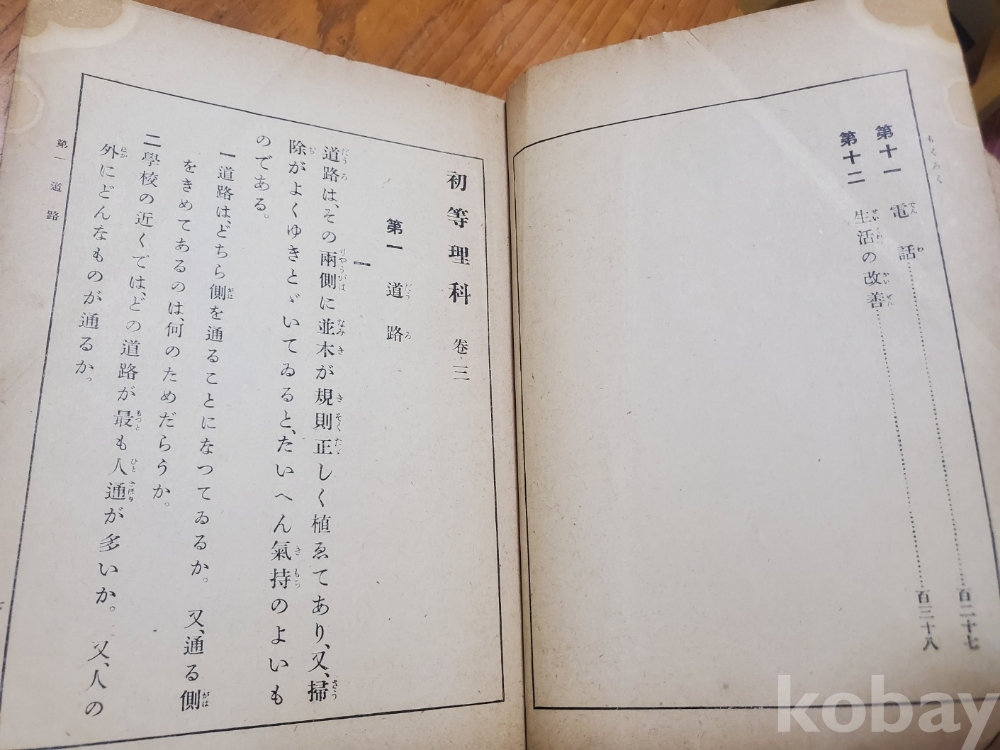 もくろく
第十一 電話 百二十七
第十二 生活の改善 百三十八
初等理科 卷三
第一 道路
一
道路は、その兩側に並木が規則正しく植ゑてあり、又、掃
除がよくゆきとゞいてゐると、たいへん氣持のよいも
のである。
一 道路は、どちら側を通ることになつてゐるか。又、通る側
をきめてあるのは、何のためだらうか。
二 學校の近くでは、どの道路が最も人通が多いか。又、人の
外にどんなものが通るか。
第一 道路
kobay